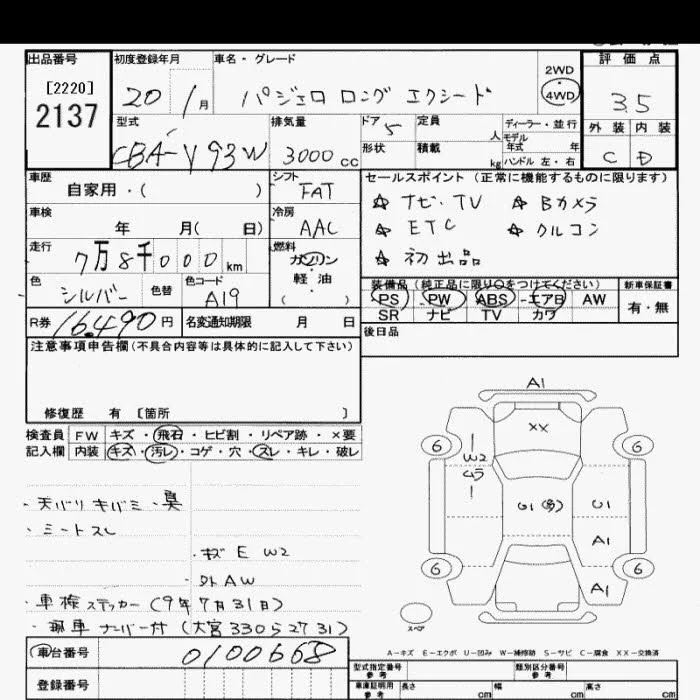 出品番号 初度登録年月 車名・グレード 2WD 評価点
[2220] 2137 20 1月 パジェロ ロング エクシード 4WD 3.5
型式 排気量 ドア 定員 人 ディーラー・並行 外装 内装
CBA-V93W 3000cc 5 形状 積載 kg モデル年式 年 ハンドル 左・右 C D
車歴 シフト セールスポイント(正常に機能するものに限ります)
自家用・( ) FAT ☆ナビ・TV ☆Bカメラ
車検 冷房 ☆ETC ☆クルコン
年 月( 日) AAC ☆初出品
走行 燃料
7万8千000km ガソリン
色 色替 色コード 軽油 装備品(純正品に限り○をつけてください) 新車保証書
シルバー A19 ( ) PS PW ABS エアB AW 有・無
SR ナビ TV カワ
R券 16,490円 名変通知期限 月 日 後日品
注意事項申告欄(不具合内容等は具体的に記入して下さい)
修復歴 有 [箇所 ]
検査員 FW キズ・飛石・ヒビ割・リペア跡・×要
記入欄 内装 キズ・汚レ・コゲ・穴・スレ・キレ・破レ
A1
XX
6 6
W2
ムラ
U1
A1
6 6
A1
スペア
・天バリ キバミ・臭
・シートスレ
・キズ E W2
・外AW
・車検ステッカー(9年7月31日)
車ナンバー付(大宮330ら2731)
A-キズ E-エクボ U-凹み W-補修跡 S-サビ C-腐食 XX-交換済
車台番号 0100668 型式指定番号 参考 類別区分番号 参考
登録番号 車庫証明用 参考 長さ cm 幅 cm 高さ cm